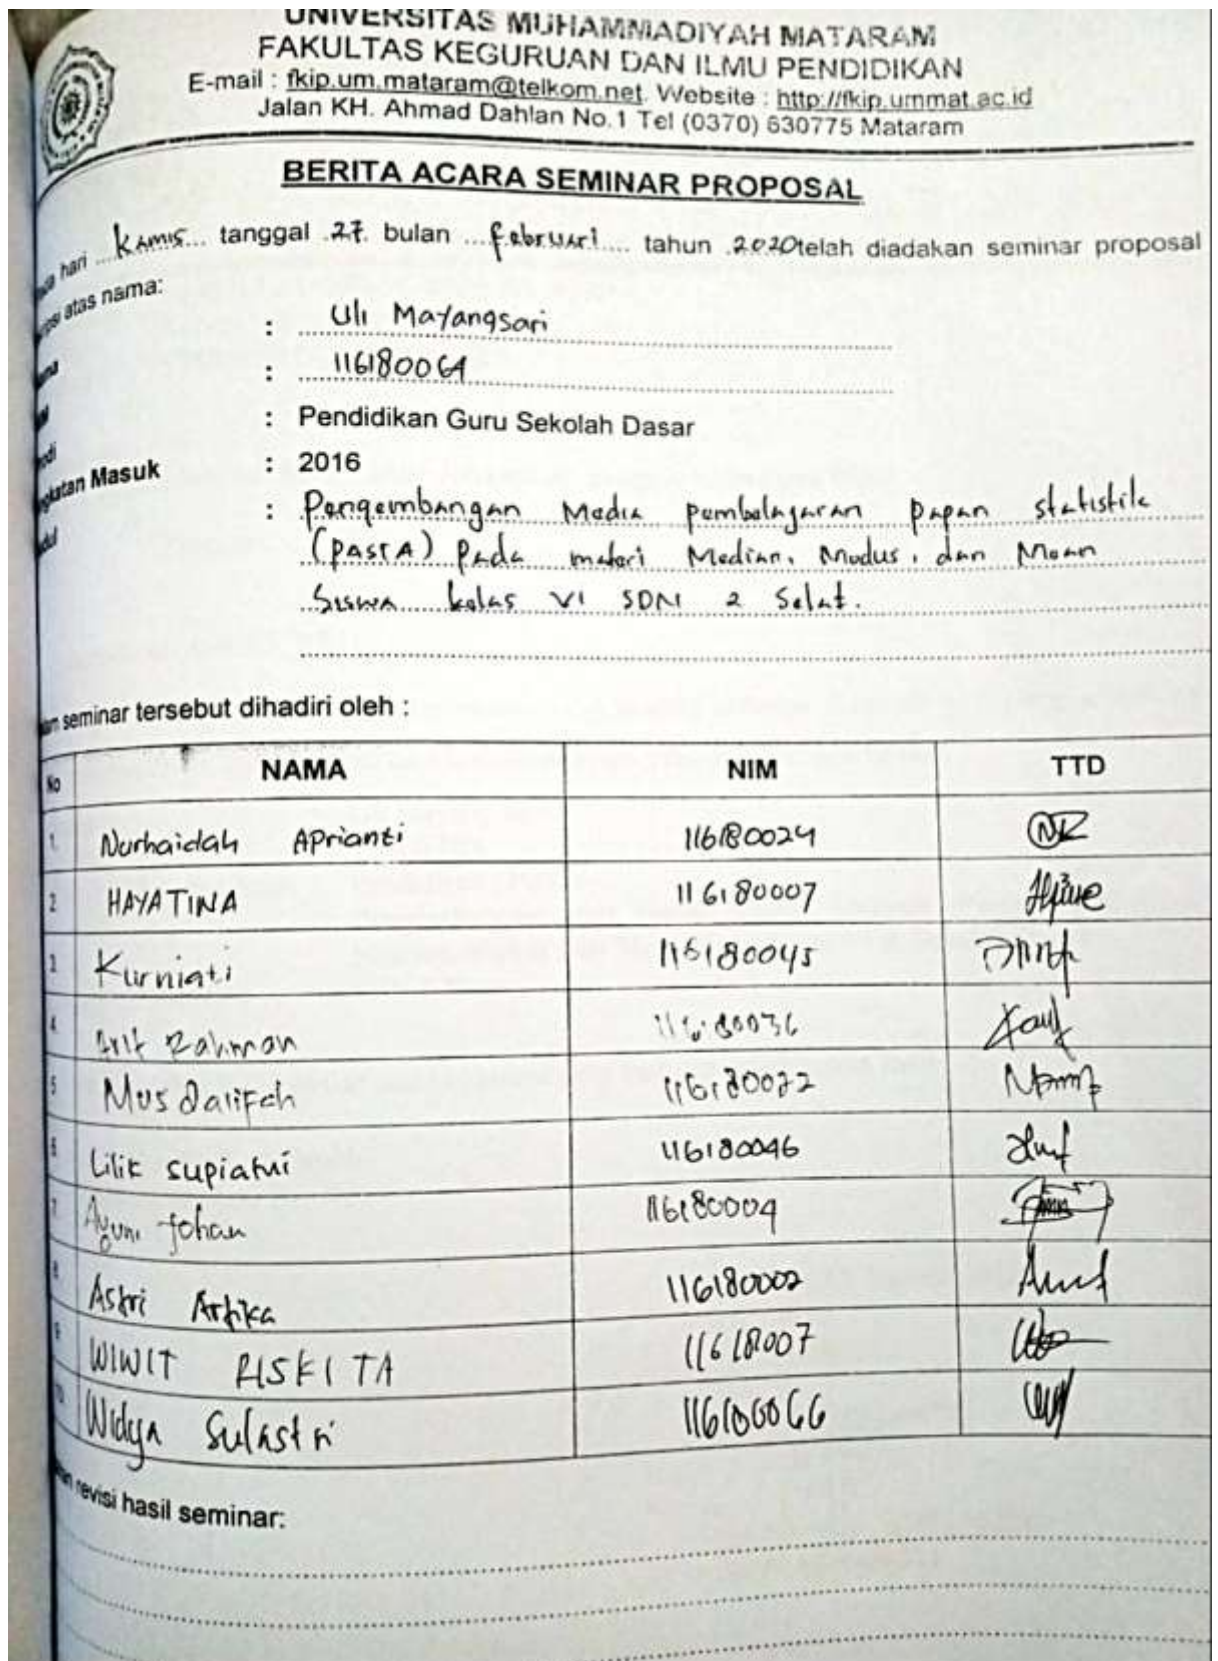 UNIVERSITAS MUHAMMADIYAH MATARAM
FAKULTAS KEGURUAN DAN ILMU PENDIDIKAN
E-mail : fkip.um.mataram@telkom.net. Website : http://fkip.ummat.ac.id
Jalan KH. Ahmad Dahlan No.1 Tel (0370) 630775 Mataram
BERITA ACARA SEMINAR PROPOSAL
hari Kamis tanggal 27 bulan Februari tahun 2020 telah diadakan seminar proposal
atas nama:
: Uli Mayangsari
: 116180064
: Pendidikan Guru Sekolah Dasar
Masuk : 2016
: Pengembangan Media pembelajaran papan statistik
(PASTA) Pada materi Median, Modus, dan Mean
Siswa kelas VI SDN 2 Selat.
seminar tersebut dihadiri oleh :
No NAMA NIM TTD
1. Nurhaidah Aprianti 116180024
2 HAYATINA 116180007
3 Kurniati 116180045
4 Rahman 116180036
5 Musdalifah
6 Lilik supiatni 116180046
7 Johan 116180004
8 Astri Artika 116180002
9 WIWIT RISKITA 11618007
10 Widya Sulastri
revisi hasil seminar: